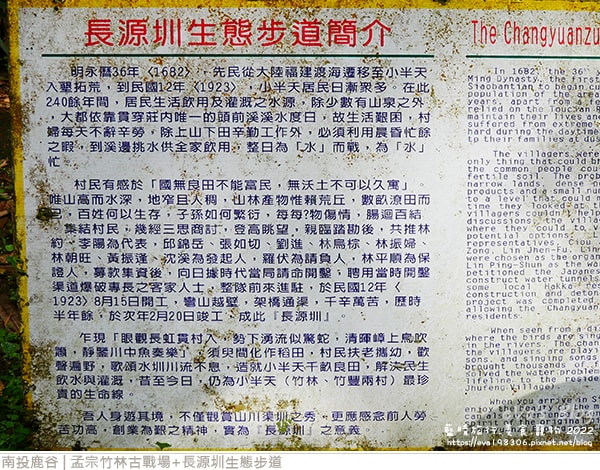 長源圳生態步道簡介
明永曆36年〈1682〉,先民從大陸福建渡海遷移至小半天
入墾拓荒,到民國12年〈1923〉,小半天居民日漸眾多。在此
240餘年間,居民生活飲用及灌溉之水源,除少數有山泉之外
,大都依靠貫穿莊內唯一的頭前溪溪水度日,故生活艱困,村
婦每天不辭辛勞,除上山下田辛勤工作外,必須利用晨昏忙餘
之暇,到溪邊挑水供全家飲用,整日為「水」而戰,為「水」
忙。
村民有感於「國無良田不能富民,無沃土不可以久寓」。
唯山高而水深,地窄且人稠,山林產物惟賴荒丘,數畝潦田而
已,百姓何以生存,子孫如何繁衍,每每?物傷情,腸迴百結
,集結村民,幾經三思商討,登高眺望,親臨踏勘後,共推林
約、李陽為代表,邱錦岳、張如切、劉進、林烏棕、林振婦、
林朝旺、黃振逢、沈溪為發起人、羅伏為請負人、林平順為保
證人,募款集資後,向日據時代當局請命開鑿,聘用當時開鑿
渠道爆破專長之客家人士,整隊前來進駐,於民國12年〈
1923〉8月15日開工,彎山越壁,架橋通渠,千辛萬苦,歷時
半年餘,於次年2月20日竣工,成此『長源圳』。
乍現「眼觀長虹貫村入,勢下湧流似駕蛇,清暉嶂上鳥吹
簫,靜鑿川中魚奏樂」,須臾間化作稻田,村民扶老攜幼,歡
聲遍野,歌頌水圳川流不息,造就小半天千畝良田,解決民生
飲水與灌溉,昔至今日,仍為小半天(竹林、竹豐兩村)最珍
貴的生命線。
吾人身遊其境,不僅觀賞山川渠圳之秀,更應感念前人勞
苦功高,創業為艱之精神,實為『長源圳』之意義。
The Changyuanzu
In 1682, the 36
Ming Dynasty, the first
Siaobantian to begin cu
population of the area
years, apart from a
relied on the Touchian
maintain their lives an
suffered from extreme
hard during the daytime
to their families to us
The villagers were
only thing that could br
the common people could
fertile soil. The
narrow lands, dense
products and a small nu
to a level that could
time they looked at th
villagers couldn't help
discussions, villagers
where they could to v
potential options.
representatives, Ciou
Zong, Lin Jhen-Fu, Lin
were chosen as the organi
Lin Ping-Shun as the wa
petitioned the Japanes
construct water tunnels
some local Hakka
construction and deton
project was completed
allowing the Changyuan
residents.
When seen from a di
where the birds are sing
in the rivers. The chan
the villages are play
sons, and singing songs
brought thousands of
solved the water problem
lifeline to the resident
village).
When you arrive at
2022
https://eva193306.pixnet.net/blog
南投鹿谷 | 孟宗竹林古戰場+長源圳生態步道